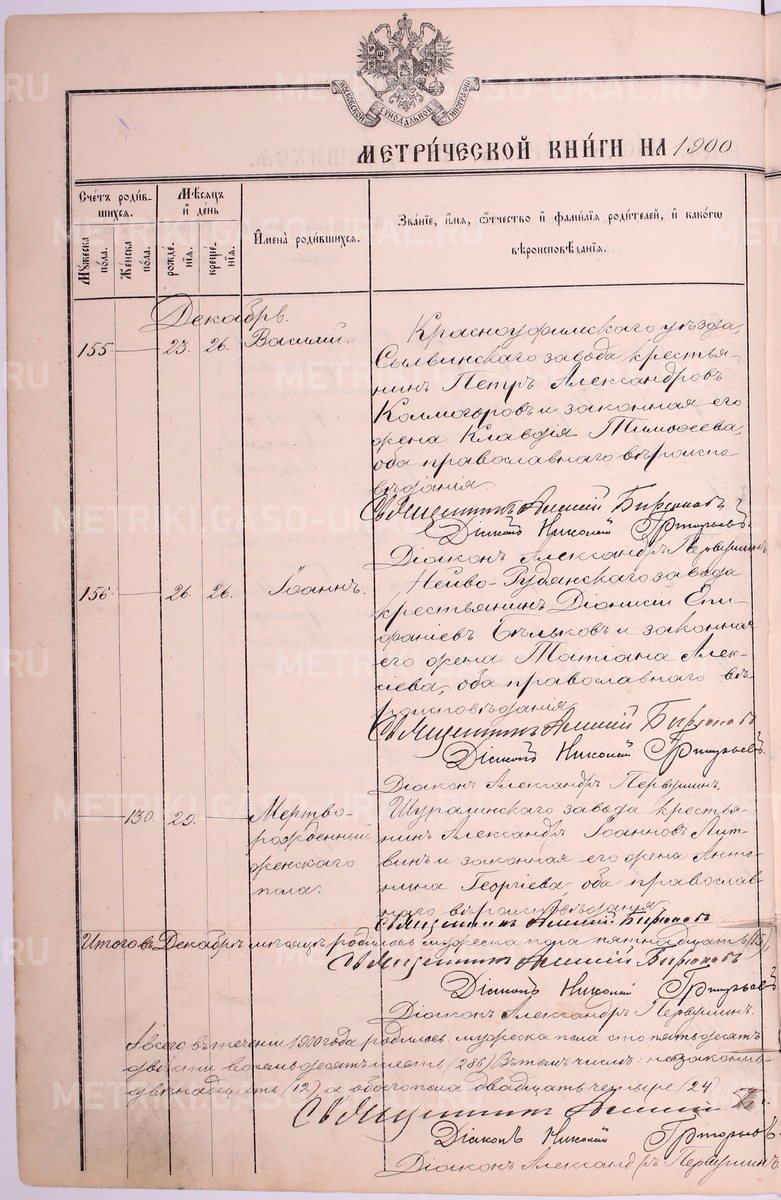 МОСКОВСКОЙ СѴНОДАЛЬНОЙ ТИПОГРАФІИ
МЕТРИ́ЧЕСКОЙ КНИ́ГИ НА 1900
Счетъ роди́в-
шихся.
Мѣсяцъ
и҆ де́нь
Мꙋжеска
по́ла.
Же́нска
по́ла.
рожде́-
нїѧ.
креще́-
нїѧ.
И҆мена̀ роди́вшихсѧ.
Зва́нїе, и҆́мѧ, ѻ҆́тчество и҆ фами́лїѧ роди́телей, и҆ како́гѡ
вѣроисповѣ́данїѧ.
Декабрь.
155 23. 26. Василій.
Красноуфимскаго уѣзда,
Сылвинскаго завода крестья-
нинъ Петръ Александровъ
Колмогоровъ и законная его
жена Клавдія Тимоѳеева,
оба православнаго вѣроиспо
вѣданія.
Священникъ Алексій Бирюковъ
Діаконъ Николай Григорьевъ
Діаконъ Александръ Первушинъ
156 26. 26. Іоаннъ.
Нейво-Рудянскаго завода
крестьянинъ Діонисій Епи-
фаніевъ Бѣльковъ и законная
его жена Татіана Алек-
сіева, оба православнаго вѣ-
роисповѣданія
Священникъ Алексій Бирюковъ
Діаконъ Николай Григорьевъ.
Діаконъ Александръ Первушинъ.
130 29. Мертво-
рожденный
женскаго
пола.
Шуралинскаго завода крестья-
нинъ Александръ Іоанновъ Лит-
винъ и законная его жена Анто-
нина Георгіева, оба православ-
наго вѣроисповѣданія
Священникъ Алексій Бирюковъ
Итого въ Декабрѣ мѣсяцѣ родилось мужеска пола пятнадцать (15),
Священникъ Алексій Бирюковъ
Діаконъ Николай Григорьевъ
Діаконъ Александръ Первушинъ.
А всего въ теченіи 1900 года родилось: мужеска пола сто пятьдесятъ
двѣсти восемьдесятъ шесть (286) Въ томъ числѣ: незаконно-
двѣнадцать (12), а обоего пола двадцать четыре (24)
Священникъ Алексій
Діаконъ Николай Григорьевъ.
Діаконъ Александръ Первушинъ
METRIKI.GASO-URAL.RU